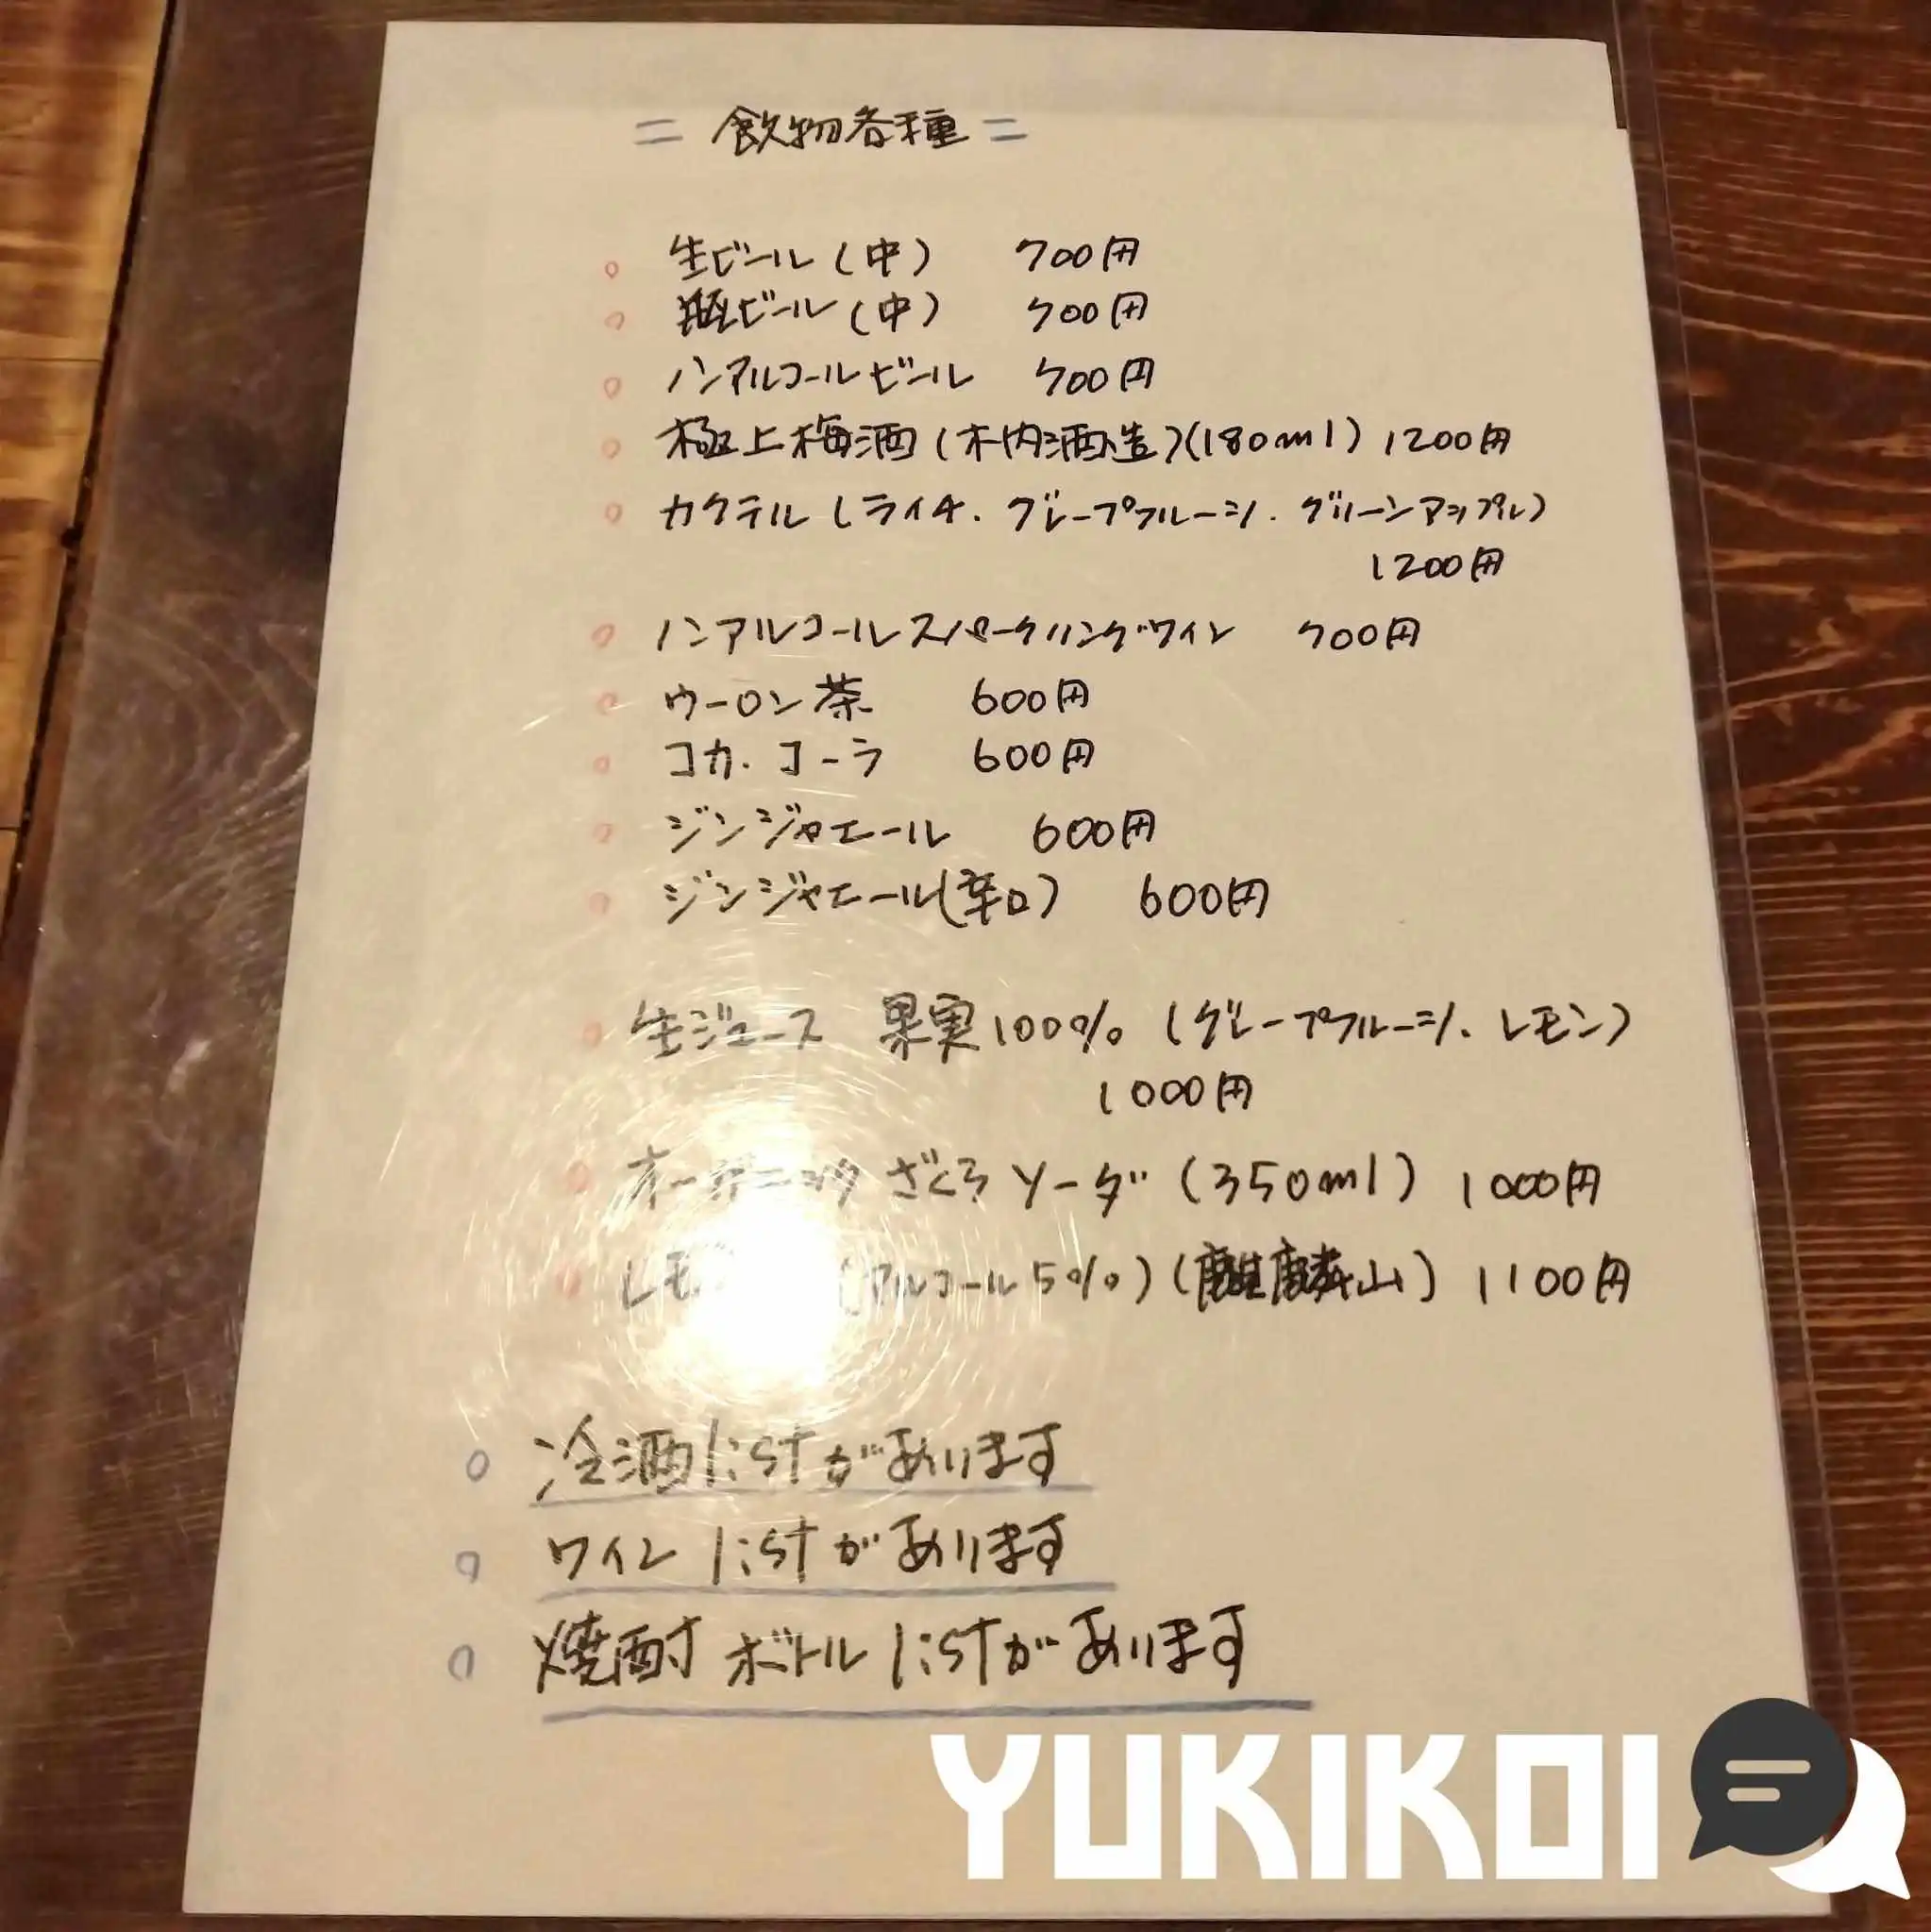 = 飲物各種 =
○ 生ビール(中) 700円
○ 瓶ビール(中) 700円
○ ノンアルコールビール 700円
○ 極上梅酒(木内酒造)(180ml) 1200円
○ カクテル(ライチ・グレープフルーツ・グリーンアップル)
1200円
○ ノンアルコールスパークリングワイン 700円
○ ウーロン茶 600円
○ コカ・コーラ 600円
○ ジンジャエール 600円
○ ジンジャエール(辛口) 600円
○ 生ジュース 果実100% (グレープフルーツ・レモン)
1000円
○ オーガニック ざくろソーダ (350ml) 1000円
○ (アルコール5%)(麒麟山) 1100円
○ 冷酒listがあります
○ ワインlistがあります
○ 焼酎ボトルlistがあります
YUKIKOI